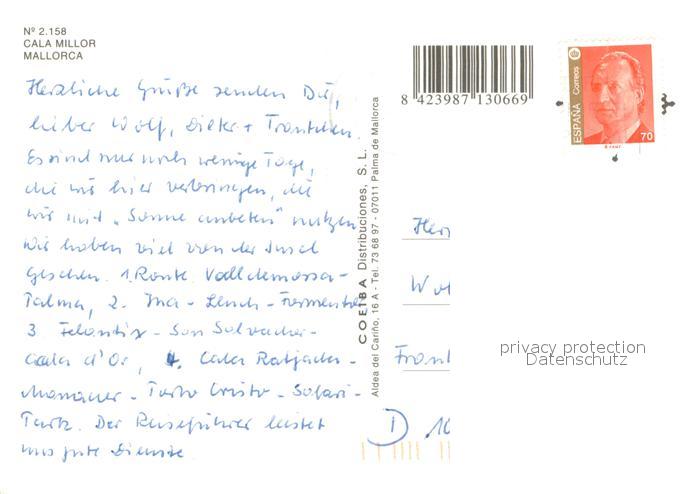 Nº 2.158
CALA MILLOR
MALLORCA
Herzliche Grüße senden Dir,
lieber Wolf, Dieter + Trautchen.
Es sind nur noch wenige Tage,
die wir hier verbringen, die
wir mit „Sonne anbeten" nutzen.
Wir haben viel von der Insel
gesehen. 1. Route Valldemossa-
Palma, 2. Inca - Lluch - Formentor
3 Felanitx - San Salvador -
Cala d'Or, 4. Cala Ratjada -
Manacor - Porto Cristo - Safari-
Park. Der Reiseführer leistet
uns gute Dienste.
COEIBA Distribuciones, S. L.
Aldea del Cariño, 16 A - Tel. 73 68 97 - 07011 Palma de Mallorca
8 423987 130669
ESPAÑA Correos
70
Herr
Wol
Frank
D 10
privacy protection
Datenschutz